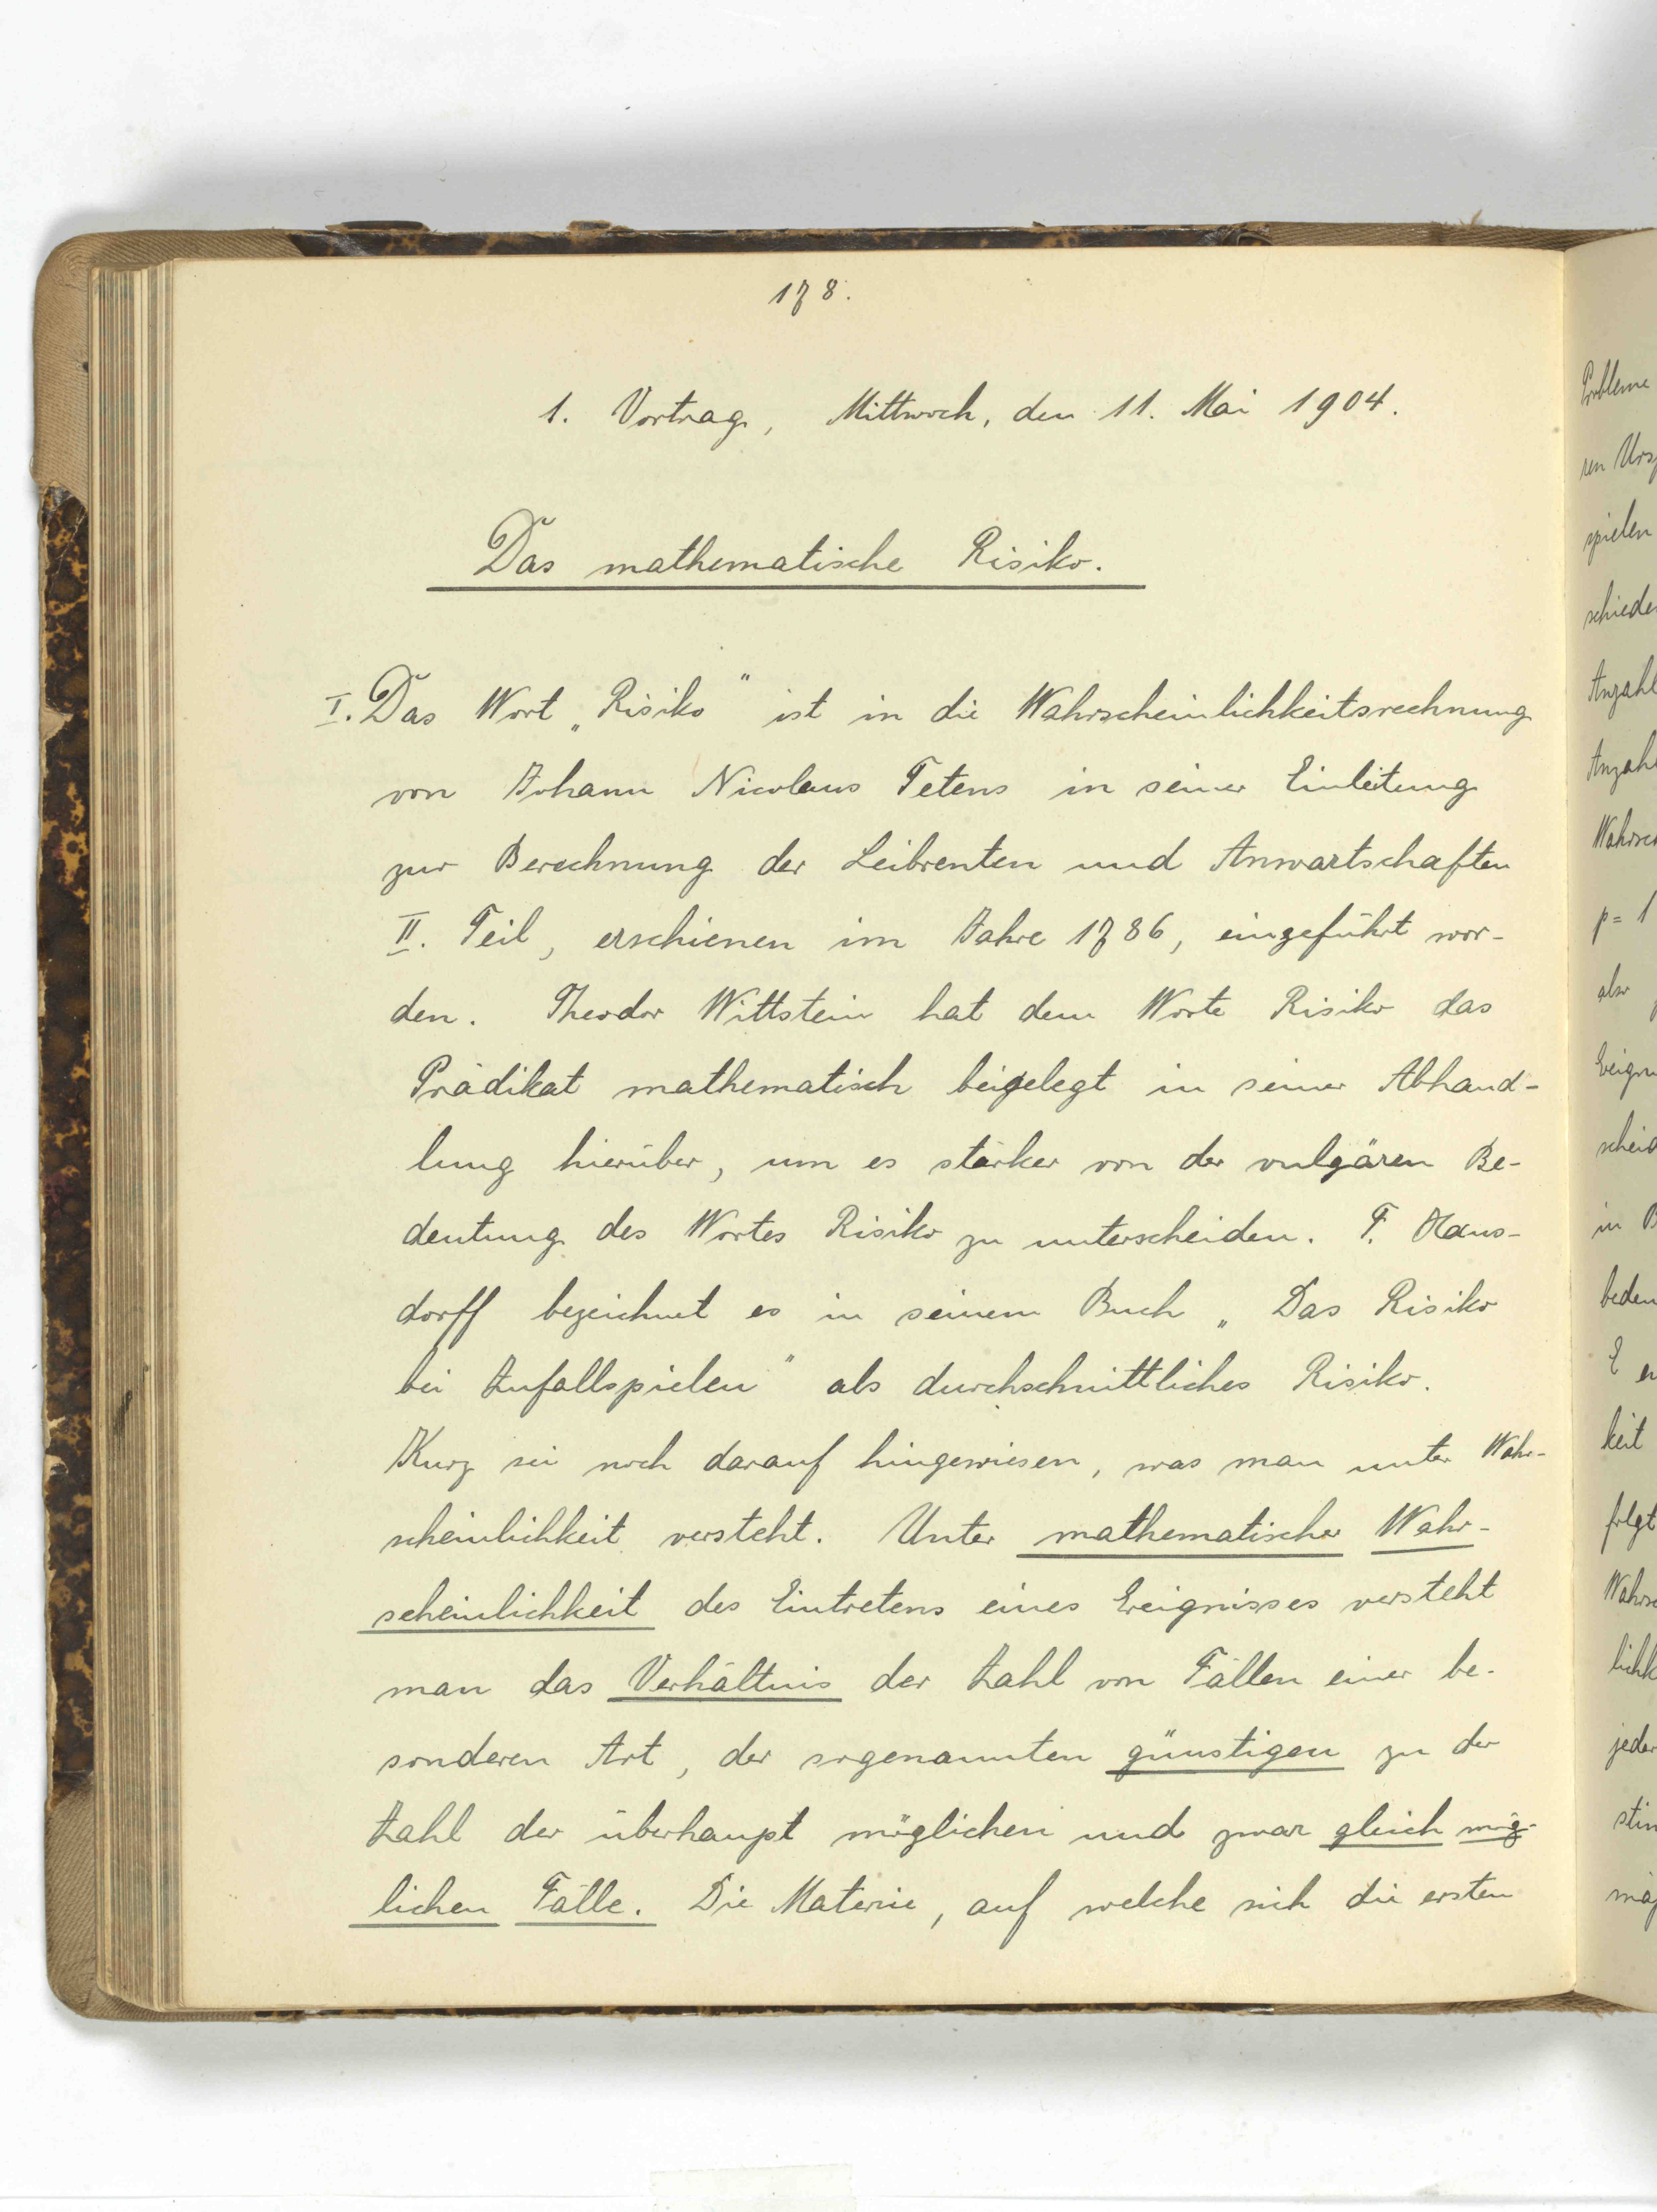 178.
1. Vortrag, Mittwoch, den 11. Mai 1904.
Das mathematische Risiko.
I. Das Wort „Risiko" ist in die Wahrscheinlichkeitsrechnung
von Johann Nicolaus Tetens in seiner Einleitung
zur Berechnung der Leibrenten und Anwartschaften
II. Teil, erschienen im Jahre 1786, eingeführt wor-
den. Theodor Wittstein hat dem Worte Risiko das
Prädikat mathematisch beigelegt in seiner Abhand-
lung hierüber, um es stärker von der vulgären Be-
deutung des Wortes Risiko zu unterscheiden. F. Haus-
dorff bezeichnet es in seinem Buch „Das Risiko
bei Zufallspielen" als durchschnittliches Risiko.
Kurz sei noch darauf hingewiesen, was man unter Wahr-
scheinlichkeit versteht. Unter mathematischer Wahr-
scheinlichkeit des Eintretens eines Ereignisses versteht
man das Verhältnis der Zahl von Fällen einer be-
sonderen Art, der sogenannten günstigen zu der
Zahl der überhaupt möglichen und zwar gleich mög-
lichen Fälle. Die Materie, auf welche sich die ersten
Probleme
ren Urs
spielen
schiede
Anzahl
Anzah
Wahrsc
p = 1
also
Ereign
scheid
in B
beden
E er
keit
folgt
Wahrs
lichk
jeder
stin
mög